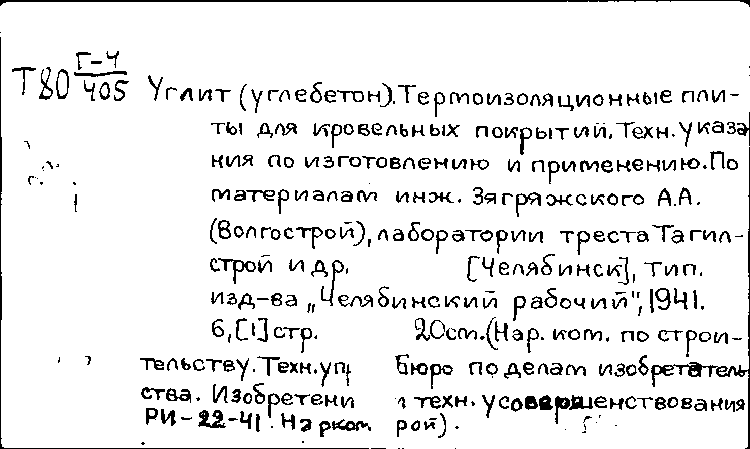 Т80 Г-4/405 Углит (углебетон). Термоизоляционные пли-
ты для кровельных покрытий. Техн. указа
ния по изготовлению и применению. По
материалам инж. Зягряжского А.А.
(Волгострой), лаборатории треста Тагил-
строй и др. [Челябинск], тип.
изд-ва „Челябинский рабочий", 1941.
6, [1] стр. 20см. (Нар. ком. по строи-
тельству. Техн. уп Бюро по делам изобретатель
ства. Изобретени и техн. усовершенствования
РИ-22-41. Нарком рой).